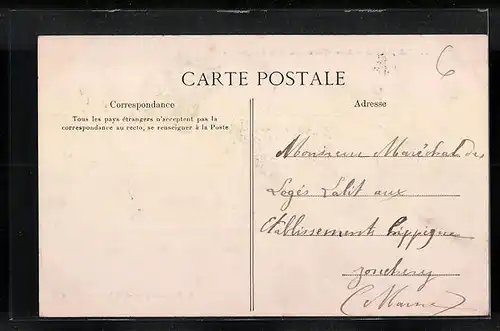 6
CARTE POSTALE
Correspondance
Tous les pays étrangers n'acceptent pas la
correspondance au recto, se renseigner à la Poste
Adresse
Monsieur Maréchal des
Logés Lalit aux
Etablissements hippique
Jonchery
(Marne)